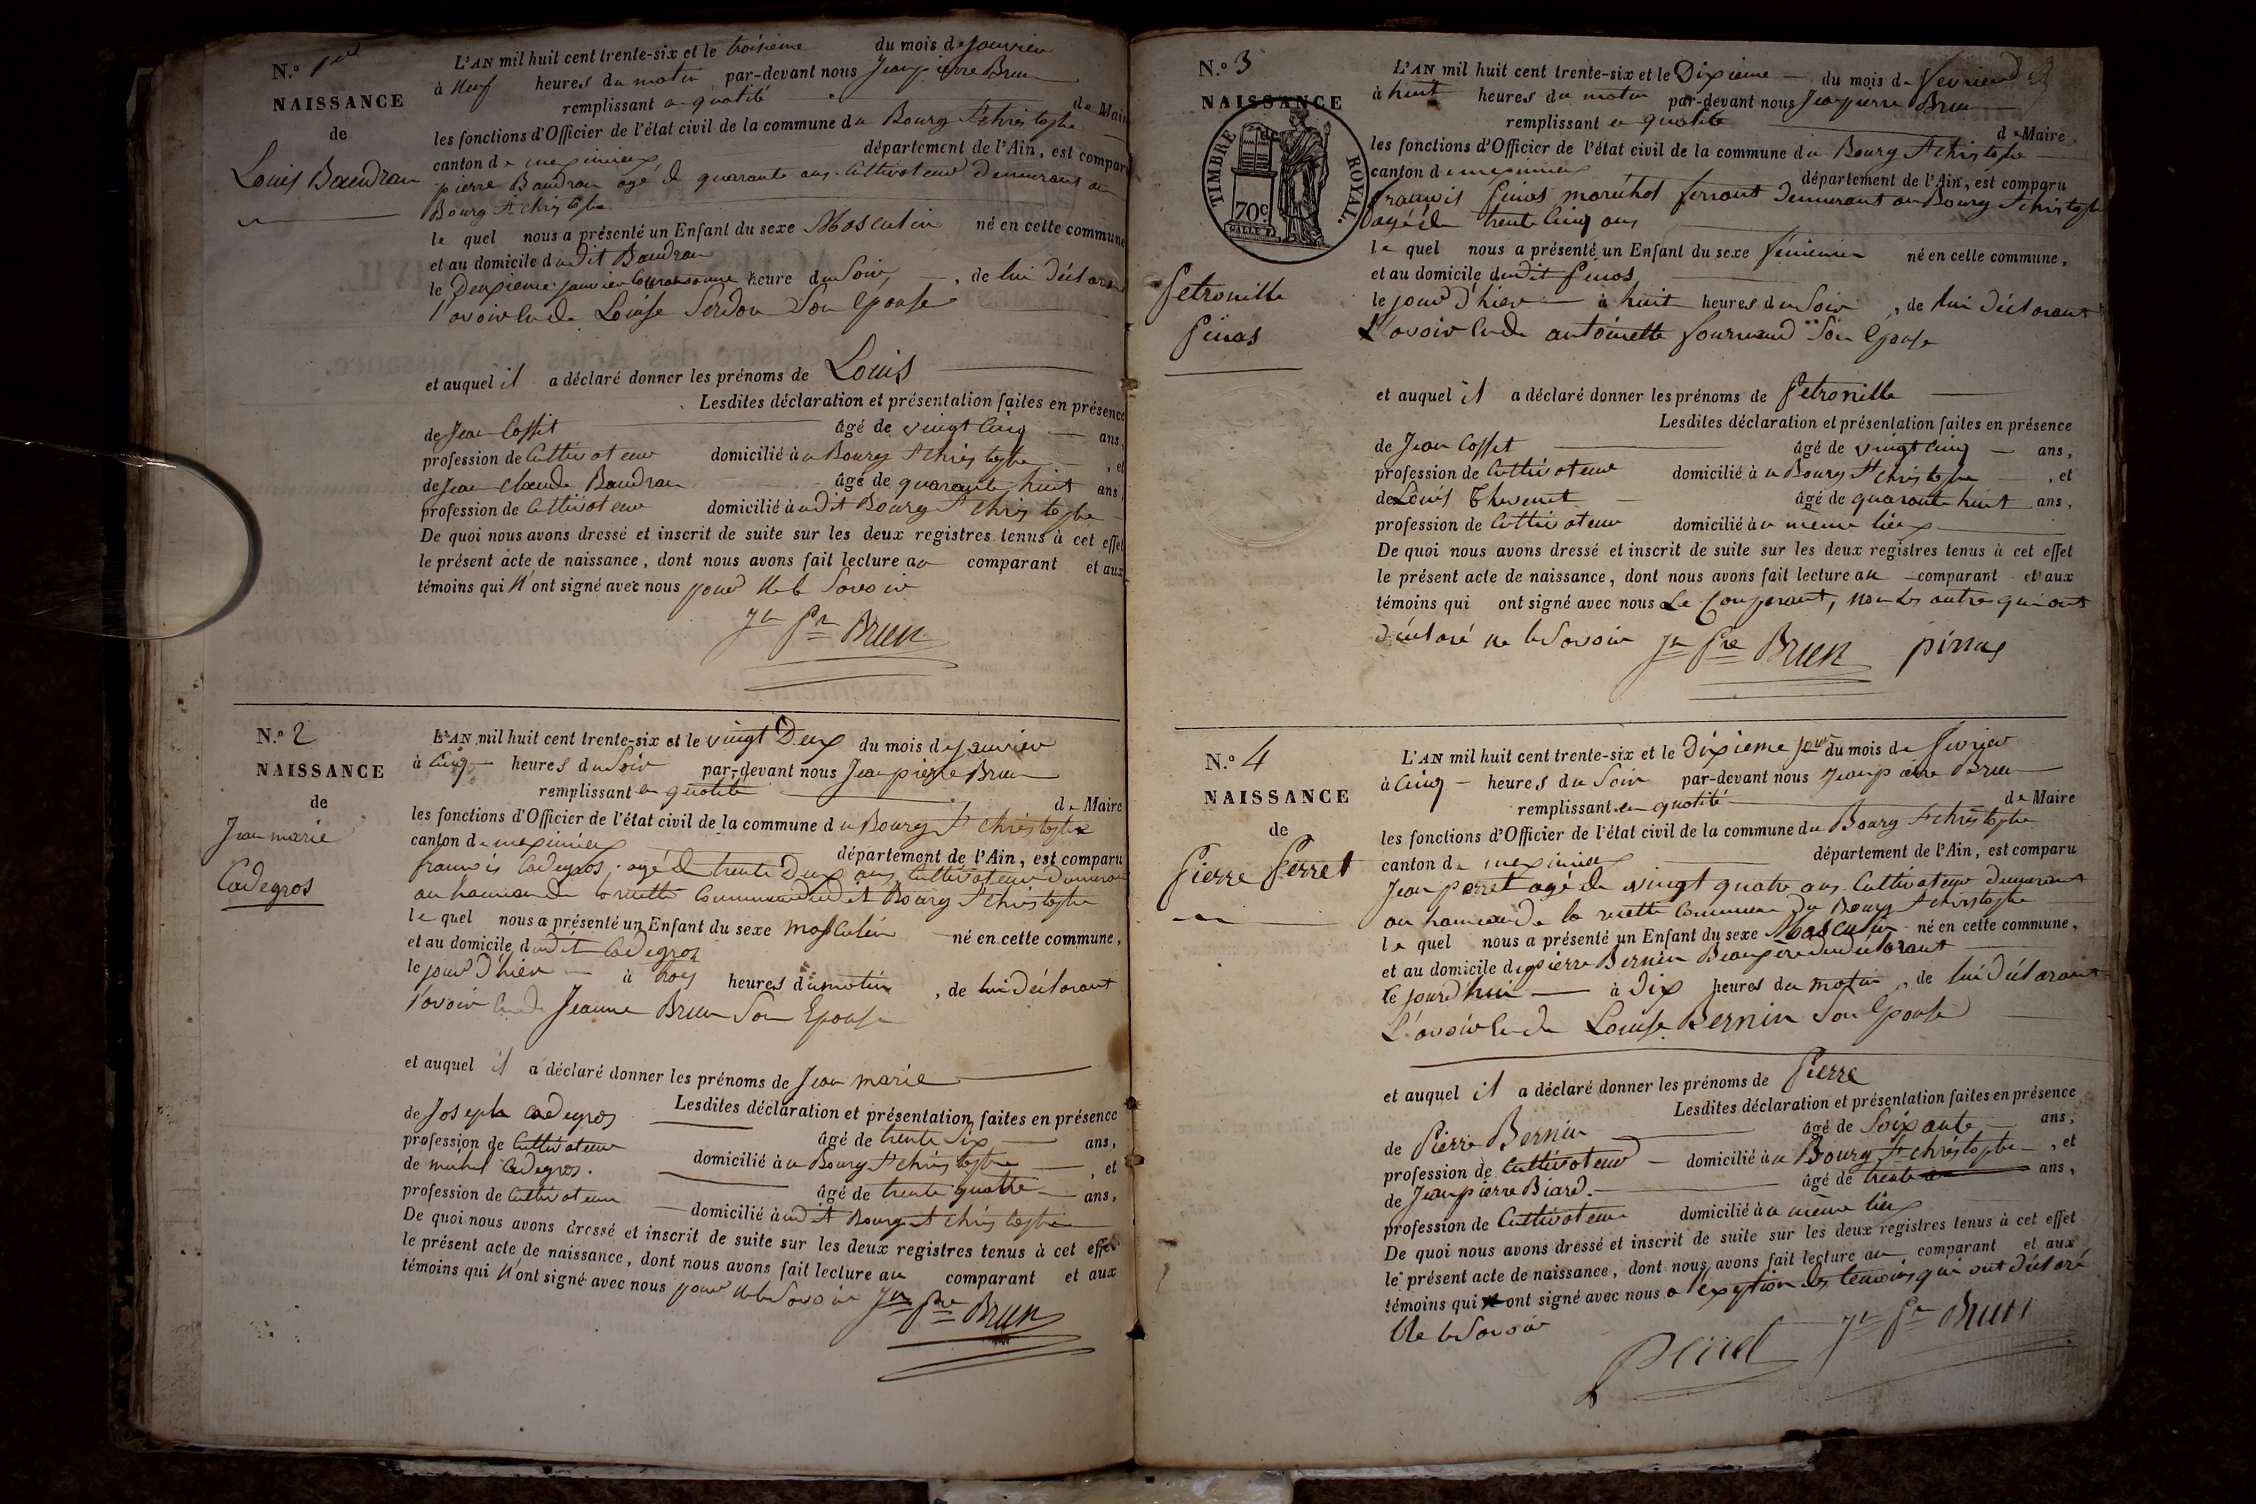 N.º 1er
NAISSANCE
de
Louis Baudran
L'AN mil huit cent trente-six et le troisieme du mois de Janvier
à neuf heures du matin par-devant nous Jean pierre Brun
remplissant en qualité de Maire
les fonctions d'Officier de l'état civil de la commune du Bourg St christophe
canton de meximieux département de l'Ain, est comparu
pierre Baudran agé de quarante ans cultivateur demeurant au
Bourg St christophe
le quel nous a présenté un Enfant du sexe Masculin né en cette commune
et au domicile dudit Baudran
le deuxieme janvier heure du Soir, de lui déclarant
l'avoir eu de Louise Serdon Son Epouse
et auquel il a déclaré donner les prénoms de Louis
Lesdites déclaration et présentation faites en présence
de Jean Cosset âgé de vingt cinq ans,
profession de Cultivateur domicilié à u Bourg St christophe, et
de Jean claude Baudran âgé de quarante huit ans,
profession de Cultivateur domicilié à udit Bourg St christophe
De quoi nous avons dressé et inscrit de suite sur les deux registres tenus à cet effet
le présent acte de naissance, dont nous avons fait lecture au comparant et aux
témoins qui n'ont signé avec nous pour ne le Savoir
Jn Pre Brun
N.º 2
NAISSANCE
de
Jean marie
Cadegros
L'AN mil huit cent trente-six et le vingt Deux du mois de Janvier
à cinq heures du Soir par-devant nous Jean pierre Brun
remplissant en qualité de Maire
les fonctions d'Officier de l'état civil de la commune du Bourg St christophe
canton de meximieux département de l'Ain, est comparu
francois Cadegros, agé de trente deux ans, Cultivateur demeurant
au hameau de la ruette Commune dudit Bourg St christophe
le quel nous a présenté un Enfant du sexe masculin né en cette commune,
et au domicile dudit Cadegros
le jour d'hier à troy heures du matin, de lui déclarant
l'avoir eu de Jeanne Brun Son Epouse
et auquel il a déclaré donner les prénoms de Jean marie
Lesdites déclaration et présentation faites en présence
de Joseph Cadegros âgé de trente Six ans,
profession de Cultivateur domicilié à u Bourg St christophe, et
de michel Cadegros. âgé de trente quatre ans,
profession de Cultivateur domicilié à udit Bourg St christophe
De quoi nous avons dressé et inscrit de suite sur les deux registres tenus à cet effet
le présent acte de naissance, dont nous avons fait lecture au comparant et aux
témoins qui n'ont signé avec nous pour ne le Savoir Jn Pre Brun
N.º 3
NAISSANCE
de
TIMBRE ROYAL.
70c
Petronille
Pinas
L'AN mil huit cent trente-six et le Dixieme du mois de fevrier
à huit heures du matin par-devant nous Jean pierre Brun
remplissant en qualité de Maire
les fonctions d'Officier de l'état civil de la commune du Bourg St christophe
canton de meximieux département de l'Ain, est comparu
françois Pinas maréchal ferrant demeurant au Bourg St christophe
agé de trente Cinq ans
le quel nous a présenté un Enfant du sexe féminin né en cette commune,
et au domicile dudit Pinas
le jour d'hier à huit heures du Soir, de lui déclarant
L'avoir eu de antoinette fournand Son Epouse
et auquel il a déclaré donner les prénoms de Petronille
Lesdites déclaration et présentation faites en présence
de Jean Cosset âgé de vingt cinq ans,
profession de Cultivateur domicilié à u Bourg St christophe, et
de Louis Thevenet âgé de quarante huit ans,
profession de Cultivateur domicilié à u même lieu
De quoi nous avons dressé et inscrit de suite sur les deux registres tenus à cet effet
le présent acte de naissance, dont nous avons fait lecture au comparant et aux
témoins qui ont signé avec nous Le Comparant, non les autres qui ont
déclaré ne le Savoir Jn Pre Brun pinas
N.º 4
NAISSANCE
de
Pierre Perret
L'AN mil huit cent trente-six et le Dixieme jour du mois de fevrier
à Cinq heures du Soir par-devant nous Jean pierre Brun
remplissant en qualité de Maire
les fonctions d'Officier de l'état civil de la commune du Bourg St christophe
canton de meximieux département de l'Ain, est comparu
Jean perret agé de vingt quatre ans Cultivateur demeurant
au hameau de la ruette Commune du Bourg St christophe
le quel nous a présenté un Enfant du sexe Masculin né en cette commune,
et au domicile de pierre Bernin Beaupere du déclarant
le jourdhui à Dix heures du matin, de lui déclarant
L'avoir eu de Louise Bernin Son Epouse
et auquel il a déclaré donner les prénoms de Pierre
Lesdites déclaration et présentation faites en présence
de Pierre Bernin âgé de Soixante ans,
profession de Cultivateur domicilié à u Bourg St christophe, et
de Jean pierre Biard. âgé de trente ans,
profession de Cultivateur domicilié à u même lieu
De quoi nous avons dressé et inscrit de suite sur les deux registres tenus à cet effet
le présent acte de naissance, dont nous avons fait lecture au comparant et aux
témoins qui ont signé avec nous a l'exeption des temoins qui ont déclaré
Ne le Savoir
Jn Pre Brun